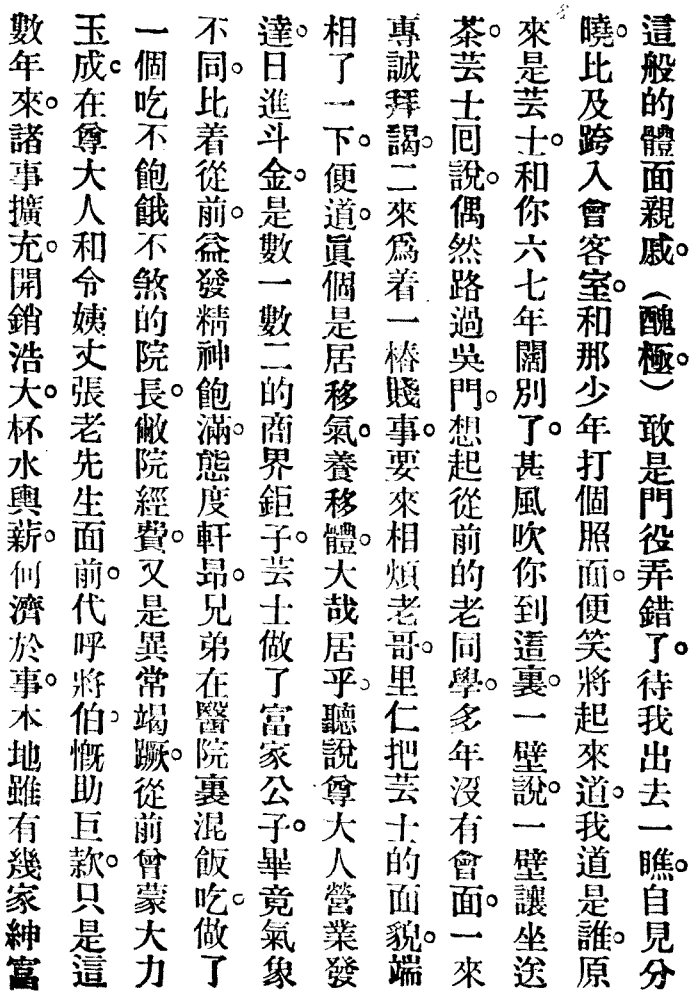 這般的體面親戚。（醜極。）敢是門役弄錯了。待我出去一瞧。自見分
曉。比及跨入會客室。和那少年打個照面。便笑將起來道。我道是誰。原
來是芸士。和你六七年闊別了。甚風吹你到這裏。一壁說。一壁讓坐送
茶。芸士囘說。偶然路過吳門。想起從前的老同學。多年沒有會面。一來
專誠拜謁。二來爲着一樁賤事。要來相煩老哥。里仁把芸士的面貌。端
相了一下。便道。眞個是居移氣。養移體。大哉居乎。聽說尊大人營業發
達。日進斗金。是數一數二的商界鉅子。芸士做了富家公子。畢竟氣象
不同。比着從前。益發精神飽滿。態度軒昂。兄弟在醫院裏混飯吃。做了
一個吃不飽餓不煞的院長。敝院經費。又是異常竭蹶。從前曾蒙大力
玉成。在尊大人和令姨丈張老先生面前。代呼將伯。慨助巨款。只是這
數年來。諸事擴充。開銷浩大。杯水輿薪。何濟於事。本地雖有幾家紳富